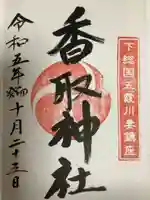 下総国五霞川妻鎮座
香取神社
令和五年十月二十三日